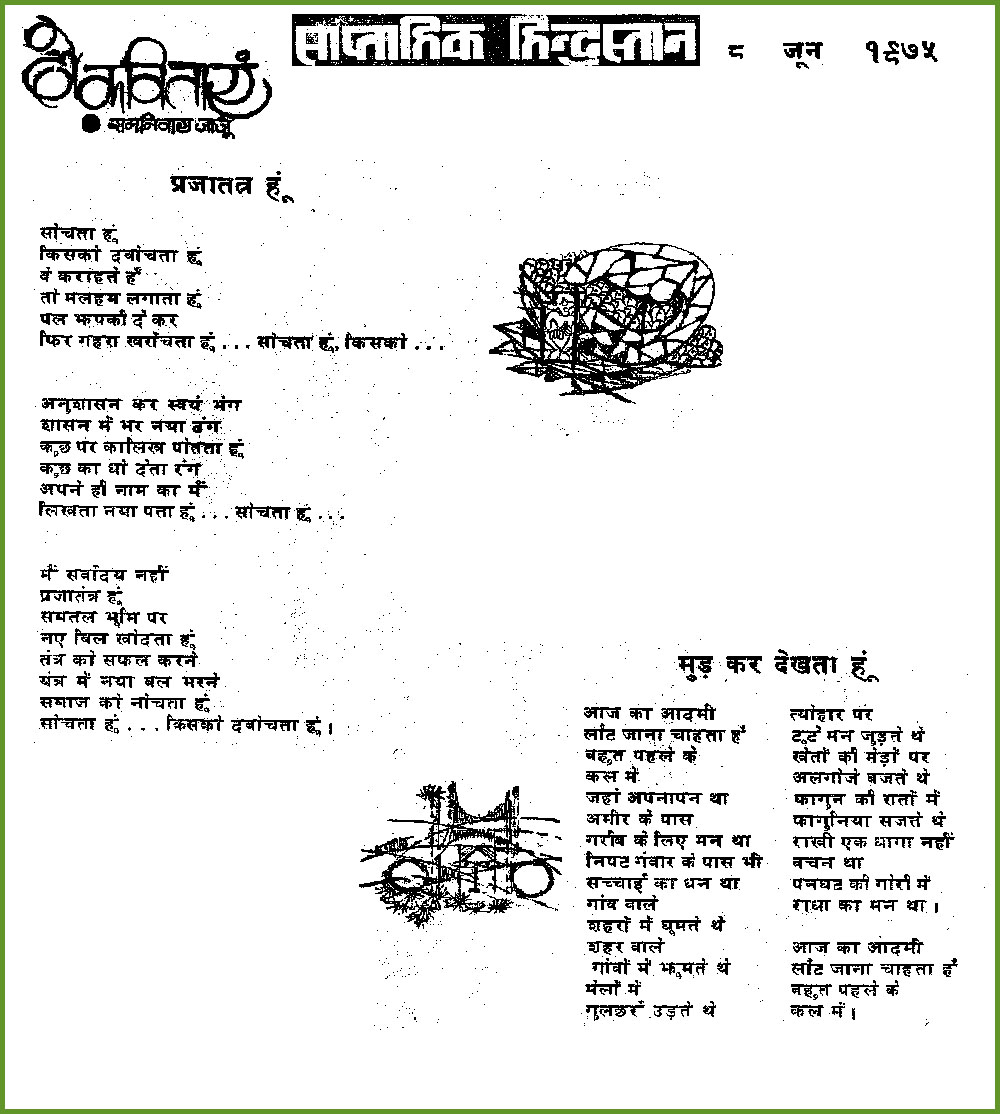 दो कविताएं
साप्ताहिक हिन्दुस्तान ८ जून १९७५
● रामनिवास जाजू
प्रजातंत्र हूं
सोचता हूं
किसको दबोचता हूं
वे कराहते हैं
तो मलहम लगाता हूं
पल झपकी दे कर
फिर गहरा खरोंचता हूं... सोचता हूं, किसको ...
अनुशासन कर स्वयं भंग
शासन में भर नया ढंग
कुछ पर कालिख पोतता हूं
कुछ का धो देता रंग
अपने ही नाम का मैं
लिखता नया पता हूं... सोचता हूं ...
मैं सर्वोदय नहीं
प्रजातंत्र हूं
समतल भूमि पर
नए बिल खोदता हूं
तंत्र को सफल करने
यंत्र में नया बल भरने
समाज को नोचता हूं
सोचता हूं ... किसको दबोचता हूं।
मुड़ कर देखता हूं
आज का आदमी
लौट जाना चाहता है
बहुत पहले के
कल में
जहां अपनापन था
अमीर के पास
गरीब के लिए मन था
निपट गंवार के पास भी
सच्चाई का धन था
गांव वाले
शहरों में घूमते थे
शहर वाले
गांवों में झूमते थे
मेलों में
गुलछर्रे उड़ते थे
त्योहार पर
टूटे मन जुड़ते थे
खेतों की मेड़ों पर
अलगोजे बजते थे
फागुन की रातों में
फागुनिया सजते थे
राखी एक धागा नहीं
वचन था
पनघट की गोरी में
राधा का मन था।
आज का आदमी
लौट जाना चाहता है
बहुत पहले के
कल में।